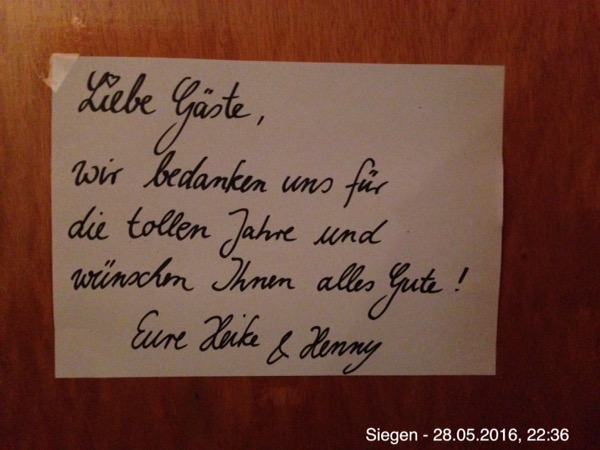 Liebe Gäste,
wir bedanken uns für
die tollen Jahre und
wünschen Ihnen alles Gute!
Eure Heike & Henny
Siegen - 28.05.2016, 22:36